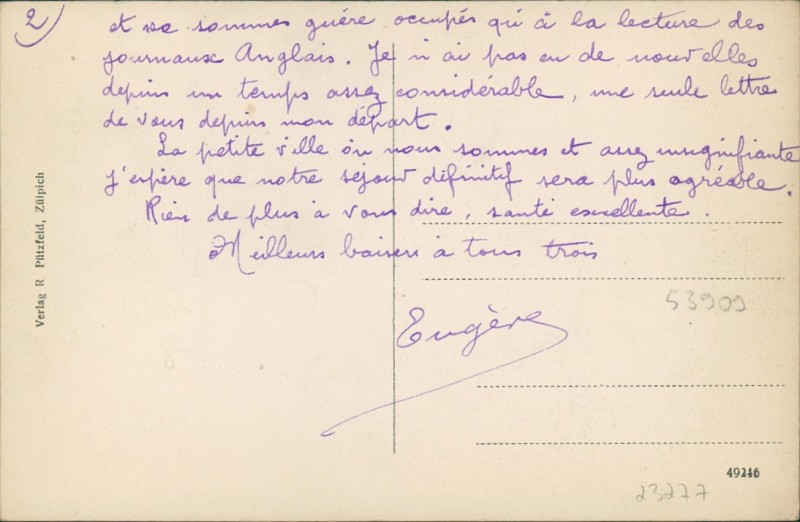 2)
et ne sommes guére occupés qu'à la lecture des
journaux Anglais. Je n'ai pas eu de nouvelles
depuis un temps assez considérable, une seule lettre
de vous depuis mon départ.
La petite ville où nous sommes et assez insignifiante
j'espère que notre séjour définitif sera plus agréable.
Rien de plus à vous dire, santé excellente.
Meilleurs baisers à tous trois
Eugène
53909
49246
23277
Verlag R Pützfeld, Zülpich